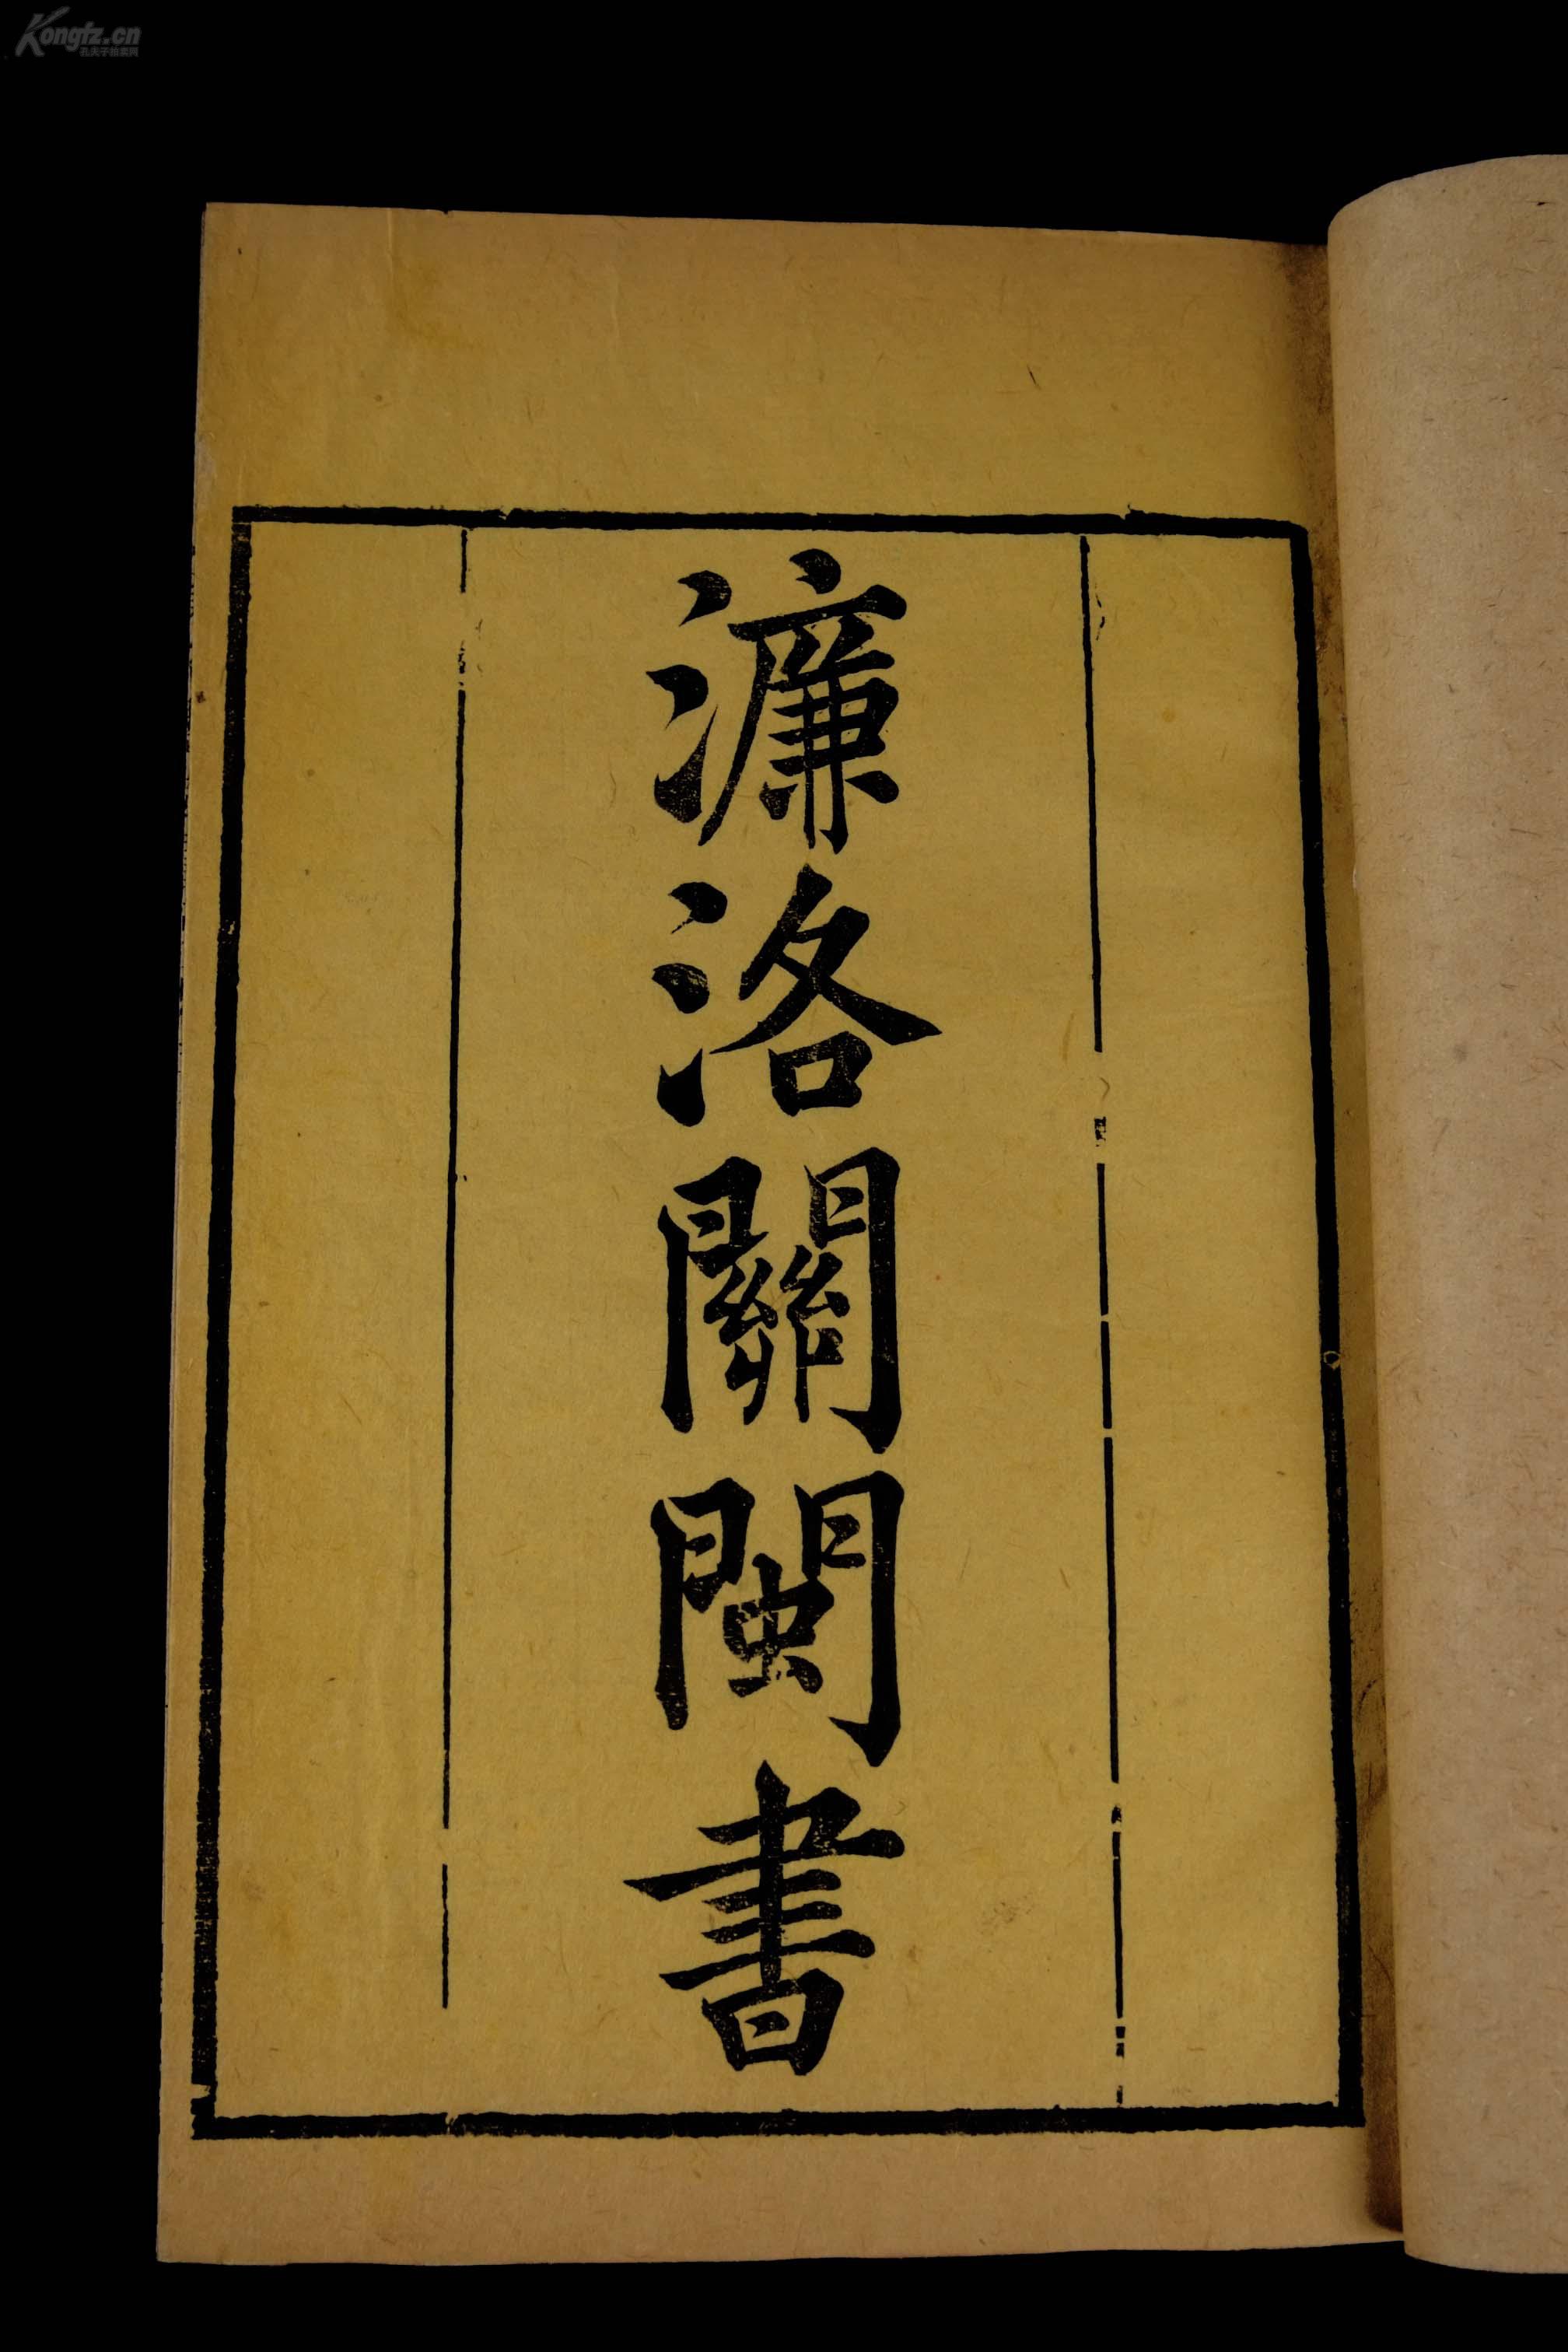 Kongfz.cn
孔夫子拍卖网
濂洛關閩書